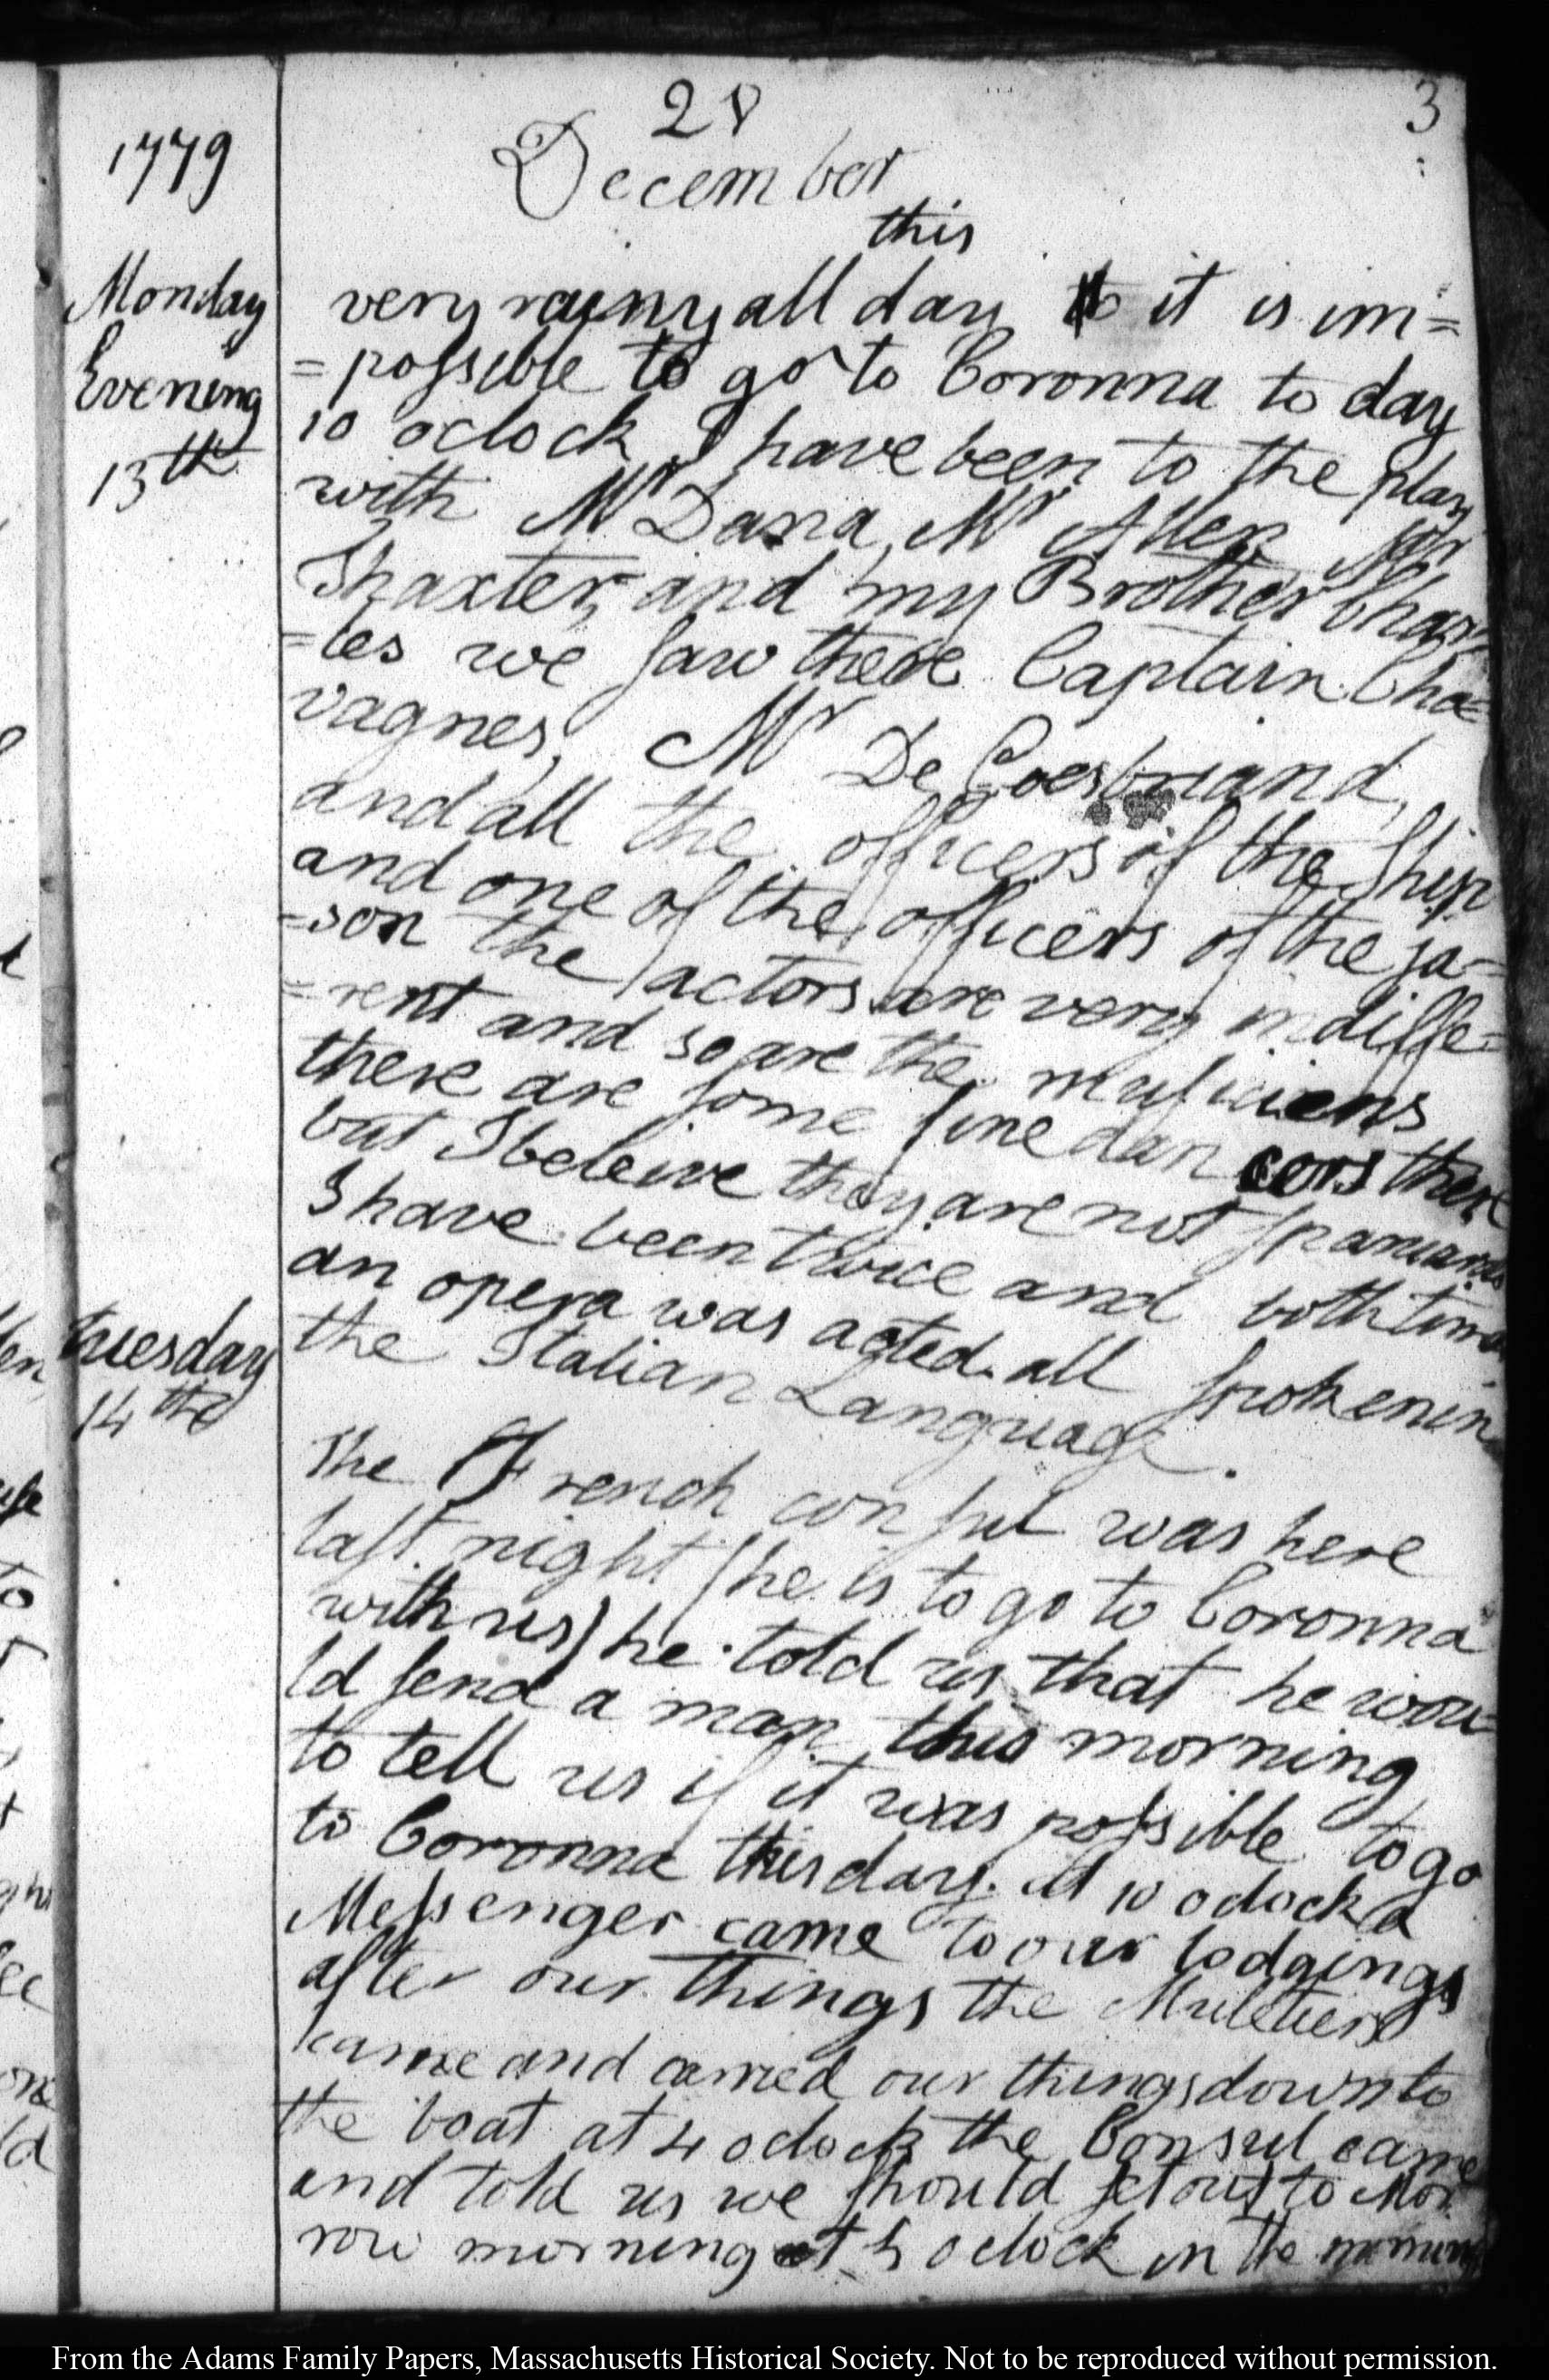 28
3
1779
December
this
Monday
very rainy all day to it is im=
Evening
=possible to go to Coronna to day
13th
10 oclock I have been to the play
with Mr Dana, Mr Allen Mr
Thaxter, and my Brother Char=
=les we saw there Captain Cha=
vagnes, Mr De Goesbriand,
and all the officers of the Ship
and one of the officers of the ja=
=son the actors are very indiffe=
=rent and so are the musiciens
there are some fine dancers there
but I beleive they are not spaniards
I have been twice and both times
an opera was acted all spoken in
the Italian Language.
tuesday
14th
The French consul was here
last night (he is to go to Coronna
with us) he told us that he wou=
ld send a man this morning
to tell us if it was possible to go
to Coronna this day. At 10 oclock a
Messenger came to our lodgings
after our things the Muletiers
came and carried our things down to
the boat at 4 oclock the Consul came
and told us we should set out to Mor
row morning at 5 oclock in the morning
From the Adams Family Papers, Massachusetts Historical Society. Not to be reproduced without permission.